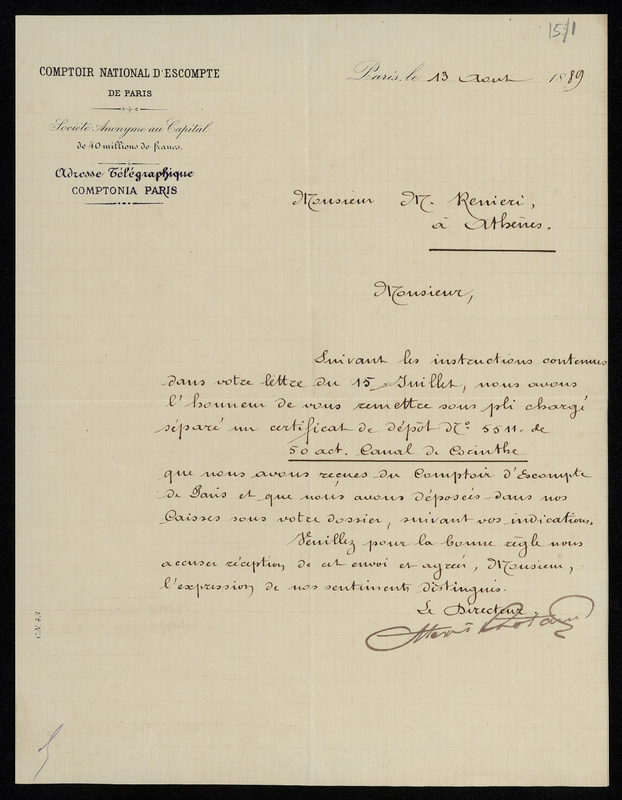 15/1
COMPTOIR NATIONAL D'ESCOMPTE
DE PARIS
Société Anonyme au Capital
de 40 millions de francs.
Adresse Télégraphique
COMPTONIA PARIS
Paris, le 13 Aout 1889
Monsieur M. Renieri,
à Athènes.
Monsieur,
Suivant les instructions contenues
dans votre lettre du 15 Juillet, nous avons
l'honneur de vous remettre sous pli chargé
séparé un certificat de dépôt No 5511. de
50 act. Canal de Corinthe
que nous avons reçues du Comptoir d'Escompte
de Paris et que nous avons déposées dans nos
Caisses sous votre dossier, suivant vos indications.
Veuillez pour la bonne règle nous
accuser réception de cet envoi et agréer, Monsieur,
l'expression de nos sentiments distingués.
Le Directeur.